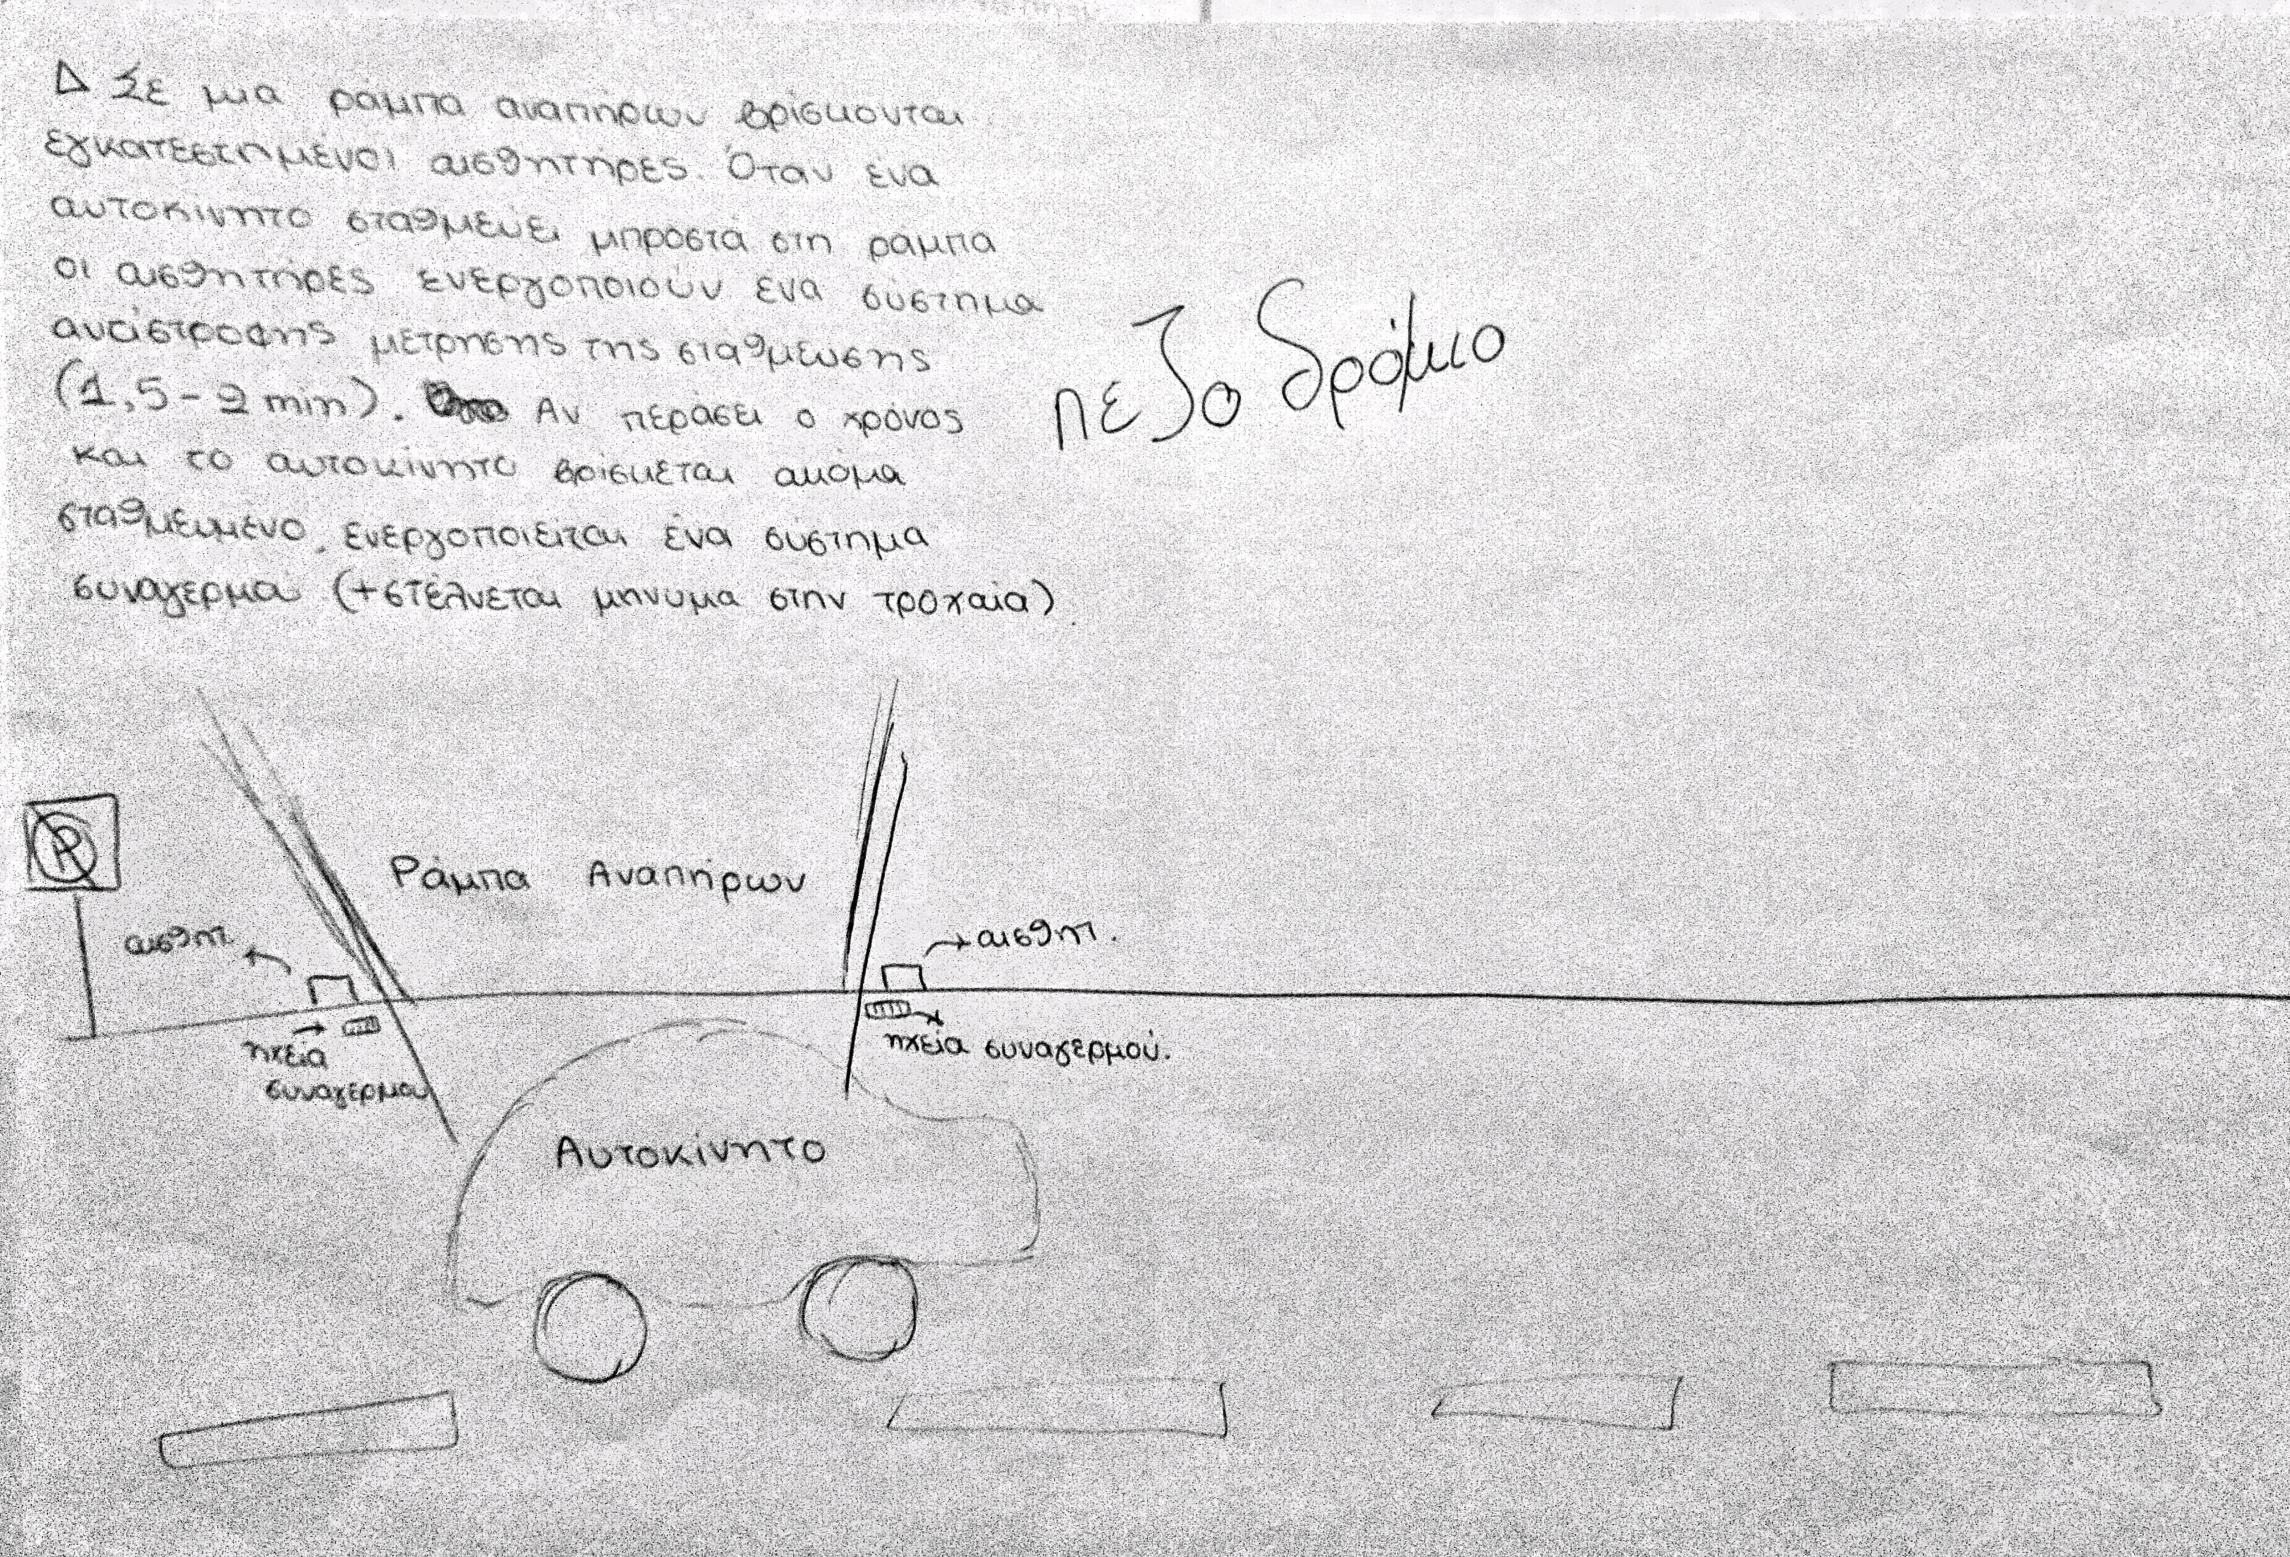 Δ Σε μια ράμπα αναπήρων βρίσκονται
εγκατεστημένοι αισθητήρες. Όταν ένα
αυτοκίνητο σταθμεύει μπροστά στη ράμπα
οι αισθητήρες ενεργοποιούν ένα σύστημα
αντίστροφης μέτρησης της στάθμευσης
(1,5-2 min). Αν περάσει ο χρόνος
και το αυτοκίνητο βρίσκεται ακόμα
σταθμευμένο, ενεργοποιείται ένα σύστημα
συναγερμού (+στέλνεται μήνυμα στην τροχαία)
πεζοδρόμιο
P
Ράμπα Αναπήρων
αισθητ.
αισθητ.
ηχεία
συναγερμού
ηχεία συναγερμού.
Αυτοκίνητο